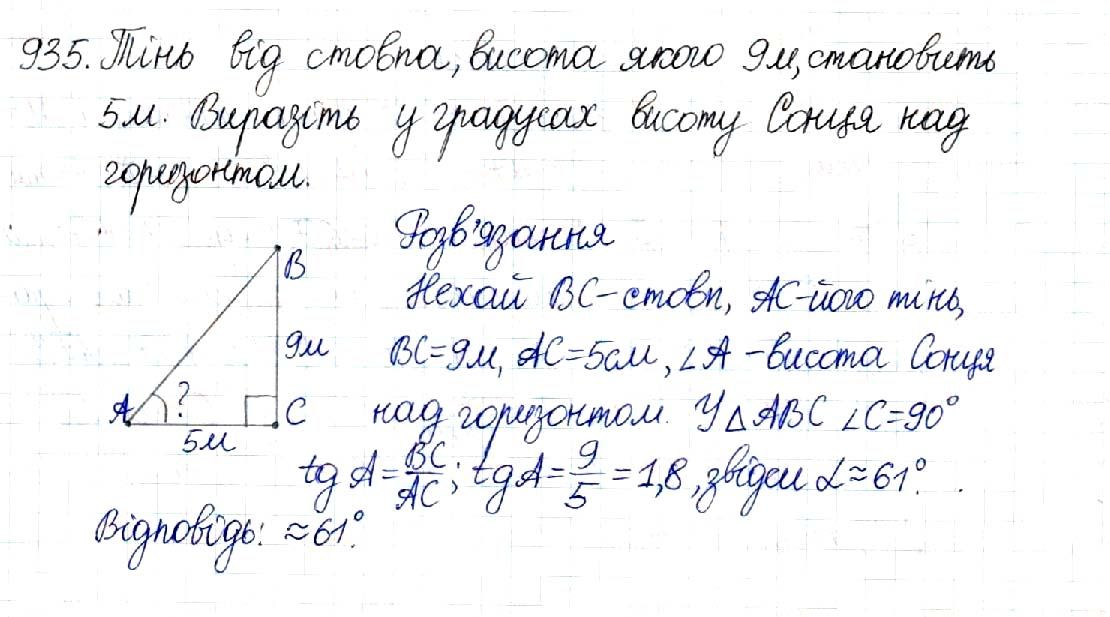 935. Тінь від стовпа, висота якого 9м, становить
5м. Виразіть у градусах висоту Сонця над
горизонтом.
Розв'язання
Нехай BC-стовп, AC-його тінь,
BC=9м, AC=5см, ∠A -висота Сонця
над горизонтом. У △ABC ∠C=90°
tg A = BC/AC; tg A = 9/5 = 1,8, звідси α ≈ 61°.
Відповідь: ≈ 61°.
B
9м
A ? C
5м